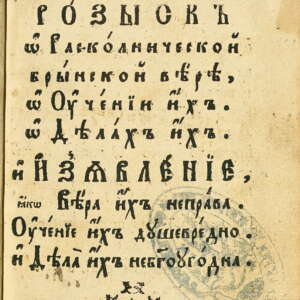 РО́ЗЫСКЪ
ѿ Раско́лнической
бры́нской вѣ́рѣ,
ѿ Оуче́нїи и҆́хъ.
ѿ Дѣла́хъ и҆́хъ.
и҆ И҆З̾ѦВЛЕ́НЇЕ,
ꙗ҆́кѡ Вѣ́ра и҆́хъ непра́ва.
Оуче́нїе и҆́хъ дꙋшевре́дно.
и҆ Дѣла̀ и҆́хъ небг҃оуго́дна.